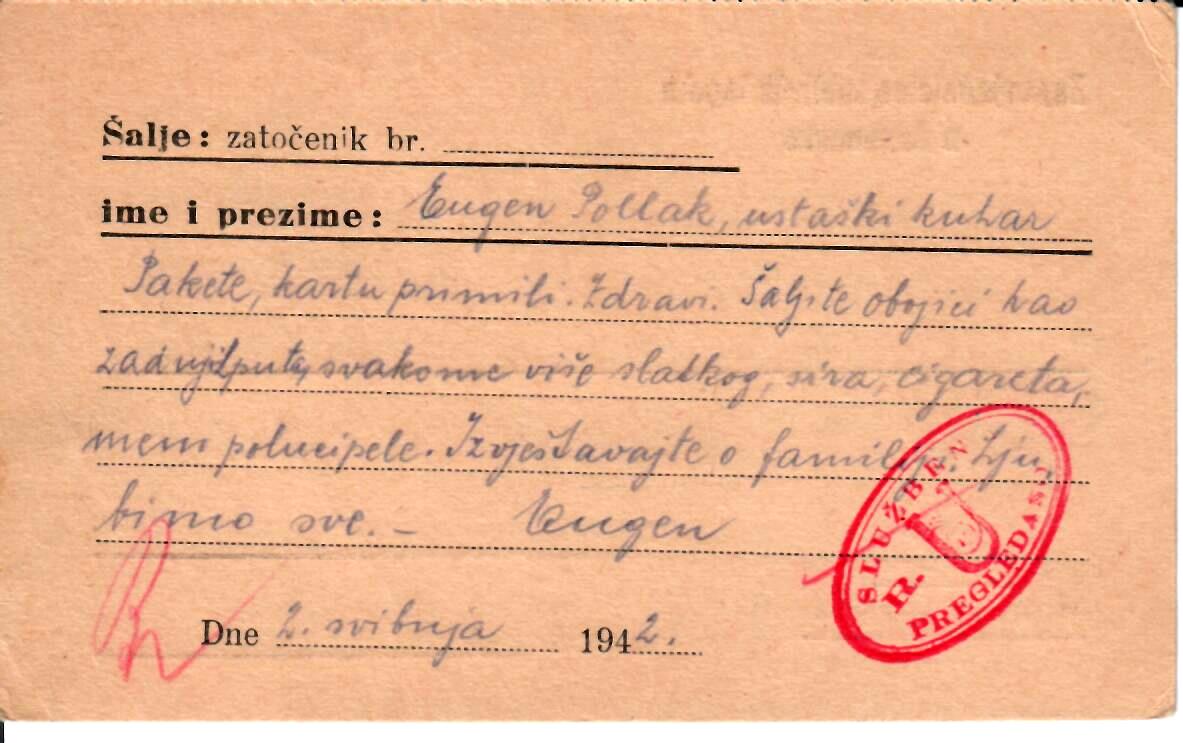 Šalje: zatočenik br.
ime i prezime: Eugen Pollak, ustaški kuhar
Pakete, kartu primili. Zdravi. Šaljite obojici kao
zadnjiputa, svakome više slatkog, sira, cigareta,
meni polucipele. Izvještavajte o familiji. Lju
bimo sve. – Eugen
Dne 2. svibnja 1942.
SLUŽBEN
R. U
PREGLEDANO